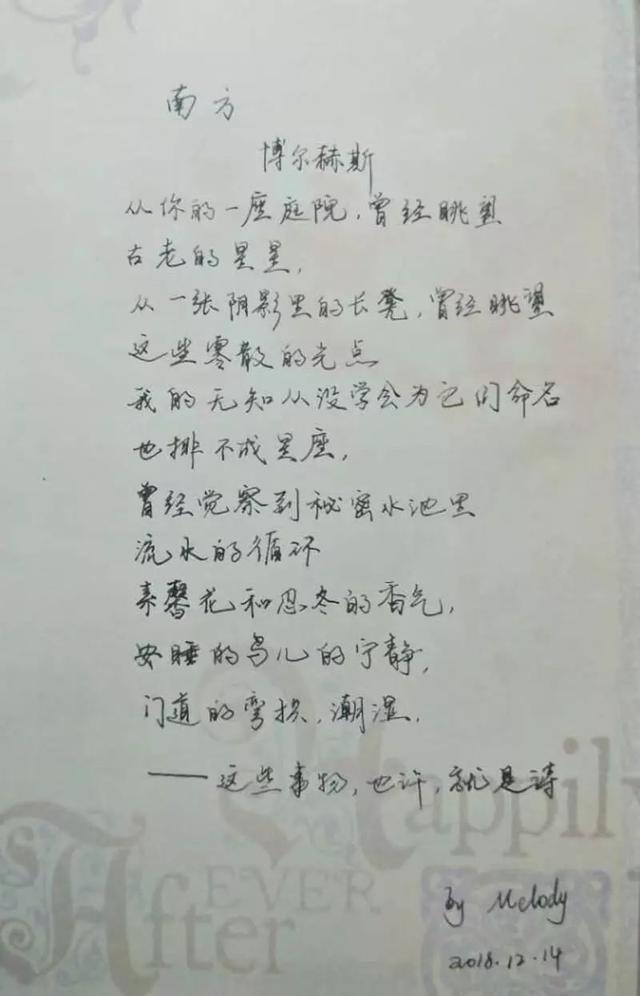 南方
博尔赫斯
从你的一座庭院，曾经眺望
古老的星星，
从一张阴影里的长凳，曾经眺望
这些零散的光点
我的无知从没学会为它们命名
也排不成星座，
曾经觉察到秘密水池里
流水的循环
素馨花和忍冬的香气，
安睡的鸟儿的宁静，
门道的弯拱，潮湿，
——这些事物，也许，就是诗
Happily
EVER
After
by Melody
2018.12.14